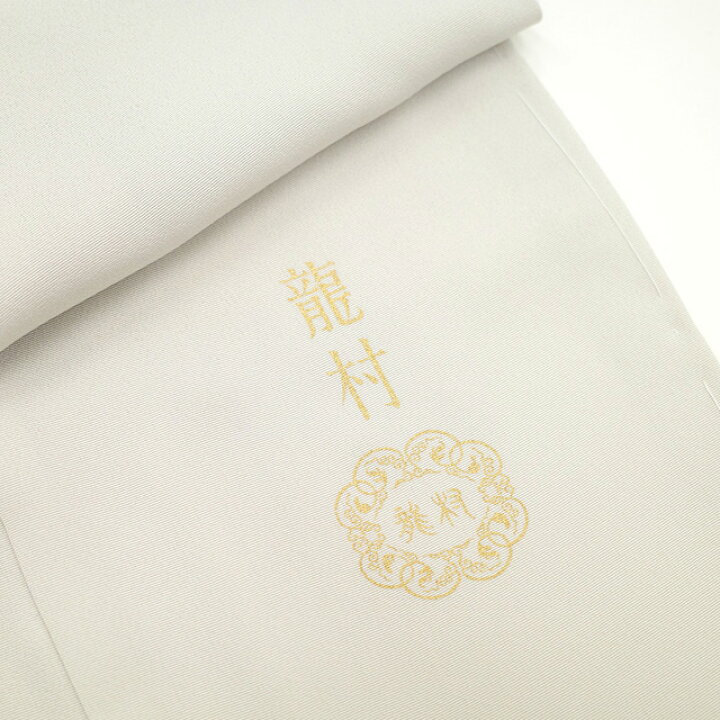 龍村
龍村